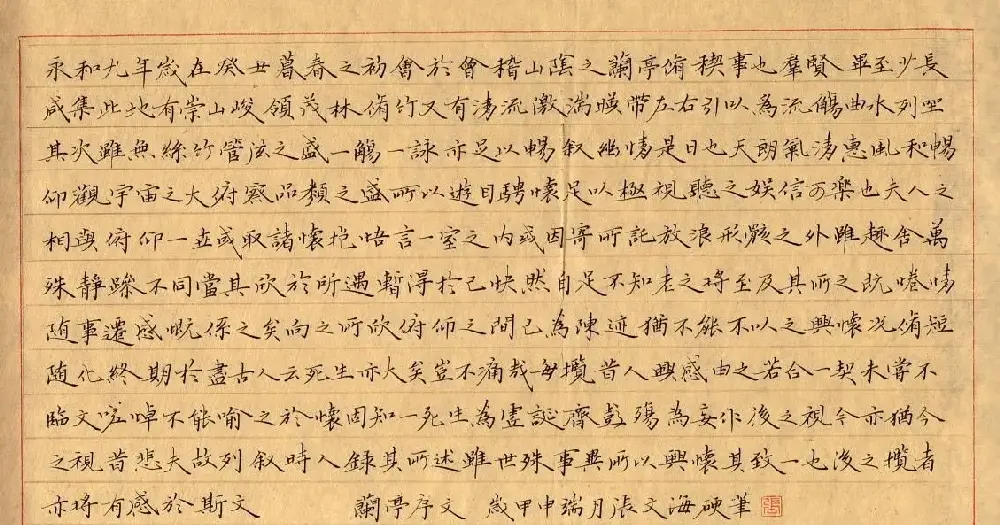 永和九年歲在癸丑暮春之初會於會稽山陰之蘭亭脩稧事也羣賢畢至少長
咸集此地有崇山峻領茂林脩竹又有清流激湍暎帶左右引以為流觴曲水列坐
其次雖無絲竹管弦之盛一觴一詠亦足以暢叙幽情是日也天朗氣清惠風和暢
仰觀宇宙之大俯察品類之盛所以遊目騁懷足以極視聽之娛信可樂也夫人之
相與俯仰一世或取諸懷抱悟言一室之内或因寄所託放浪形骸之外雖趣舍萬
殊靜躁不同當其欣於所遇暫得於己快然自足不知老之將至及其所之既惓情
随事遷感慨係之矣向之所欣俯仰之間已為陳迹猶不能不以之興懷况脩短
随化終期於盡古人云死生亦大矣豈不痛哉每攬昔人興感由之若合一契未嘗不
臨文嗟悼不能喻之於懷固知一死生為虛誕齊彭殤為妄作後之視今亦猶今
之視昔悲夫故列叙時人錄其所述雖世殊事異所以興懷其致一也後之攬者
亦將有感於斯文 蘭亭序文 歲甲申端月張文海硬筆